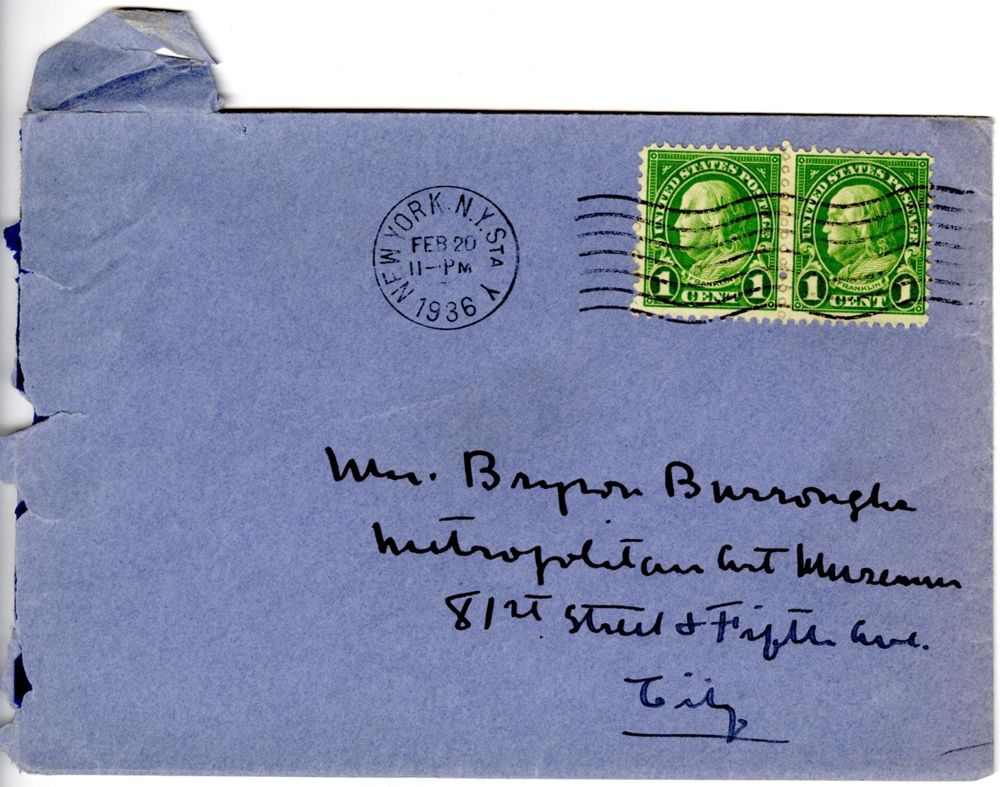 NEW YORK. N.Y. STA Y
FEB 20
11-PM
1936
UNITED STATES POSTAGE
FRANKLIN
1 CENT 1
UNITED STATES POSTAGE
FRANKLIN
1 CENT 1
Mr. Bryson Burroughs
Metropolitan Art Museum
81st Street & Fifth Ave.
City